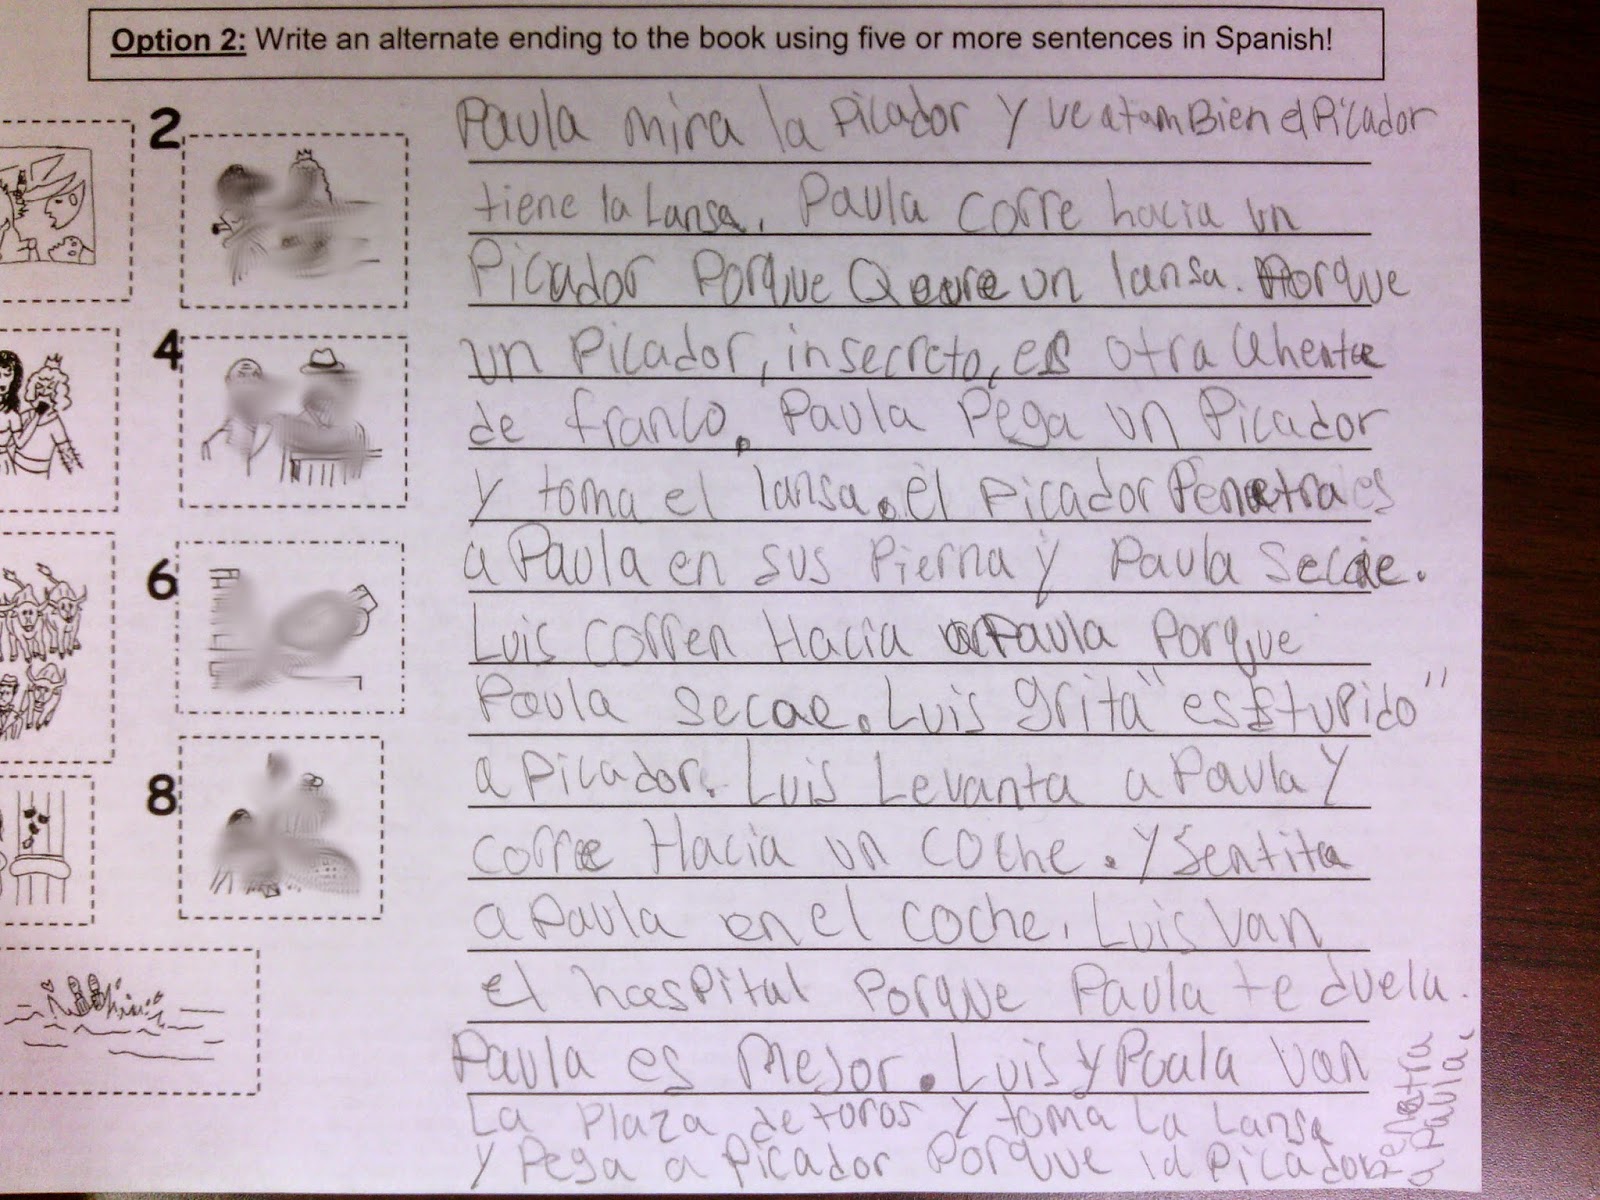 Option 2: Write an alternate ending to the book using five or more sentences in Spanish!
2
4
6
8
Paula mira la Picador y ve a tamBien el Picador
tiene la Lansa. Paula corre hacia un
Picador Porque un lansa. Porque
un Picador, in secreto, es otra
de franco. Paula Pega un Picador
y toma el lansa. el Picador Penetra es
a Paula en sus Pierna y Paula secae.
Luis corren Hacia Paula Porque
Paula secae. Luis grita "es Estupido"
a Picador. Luis Levanta a Paula y
corre Hacia un coche. y Sentita
a Paula en el coche. Luis Van
el hospital Porque Paula te duela.
Paula es Mejor. Luis y Paula Van
La Plaza de toros y toma La Lansa
y Pega a Picador Porque la Picador
Penetra
a Paula.